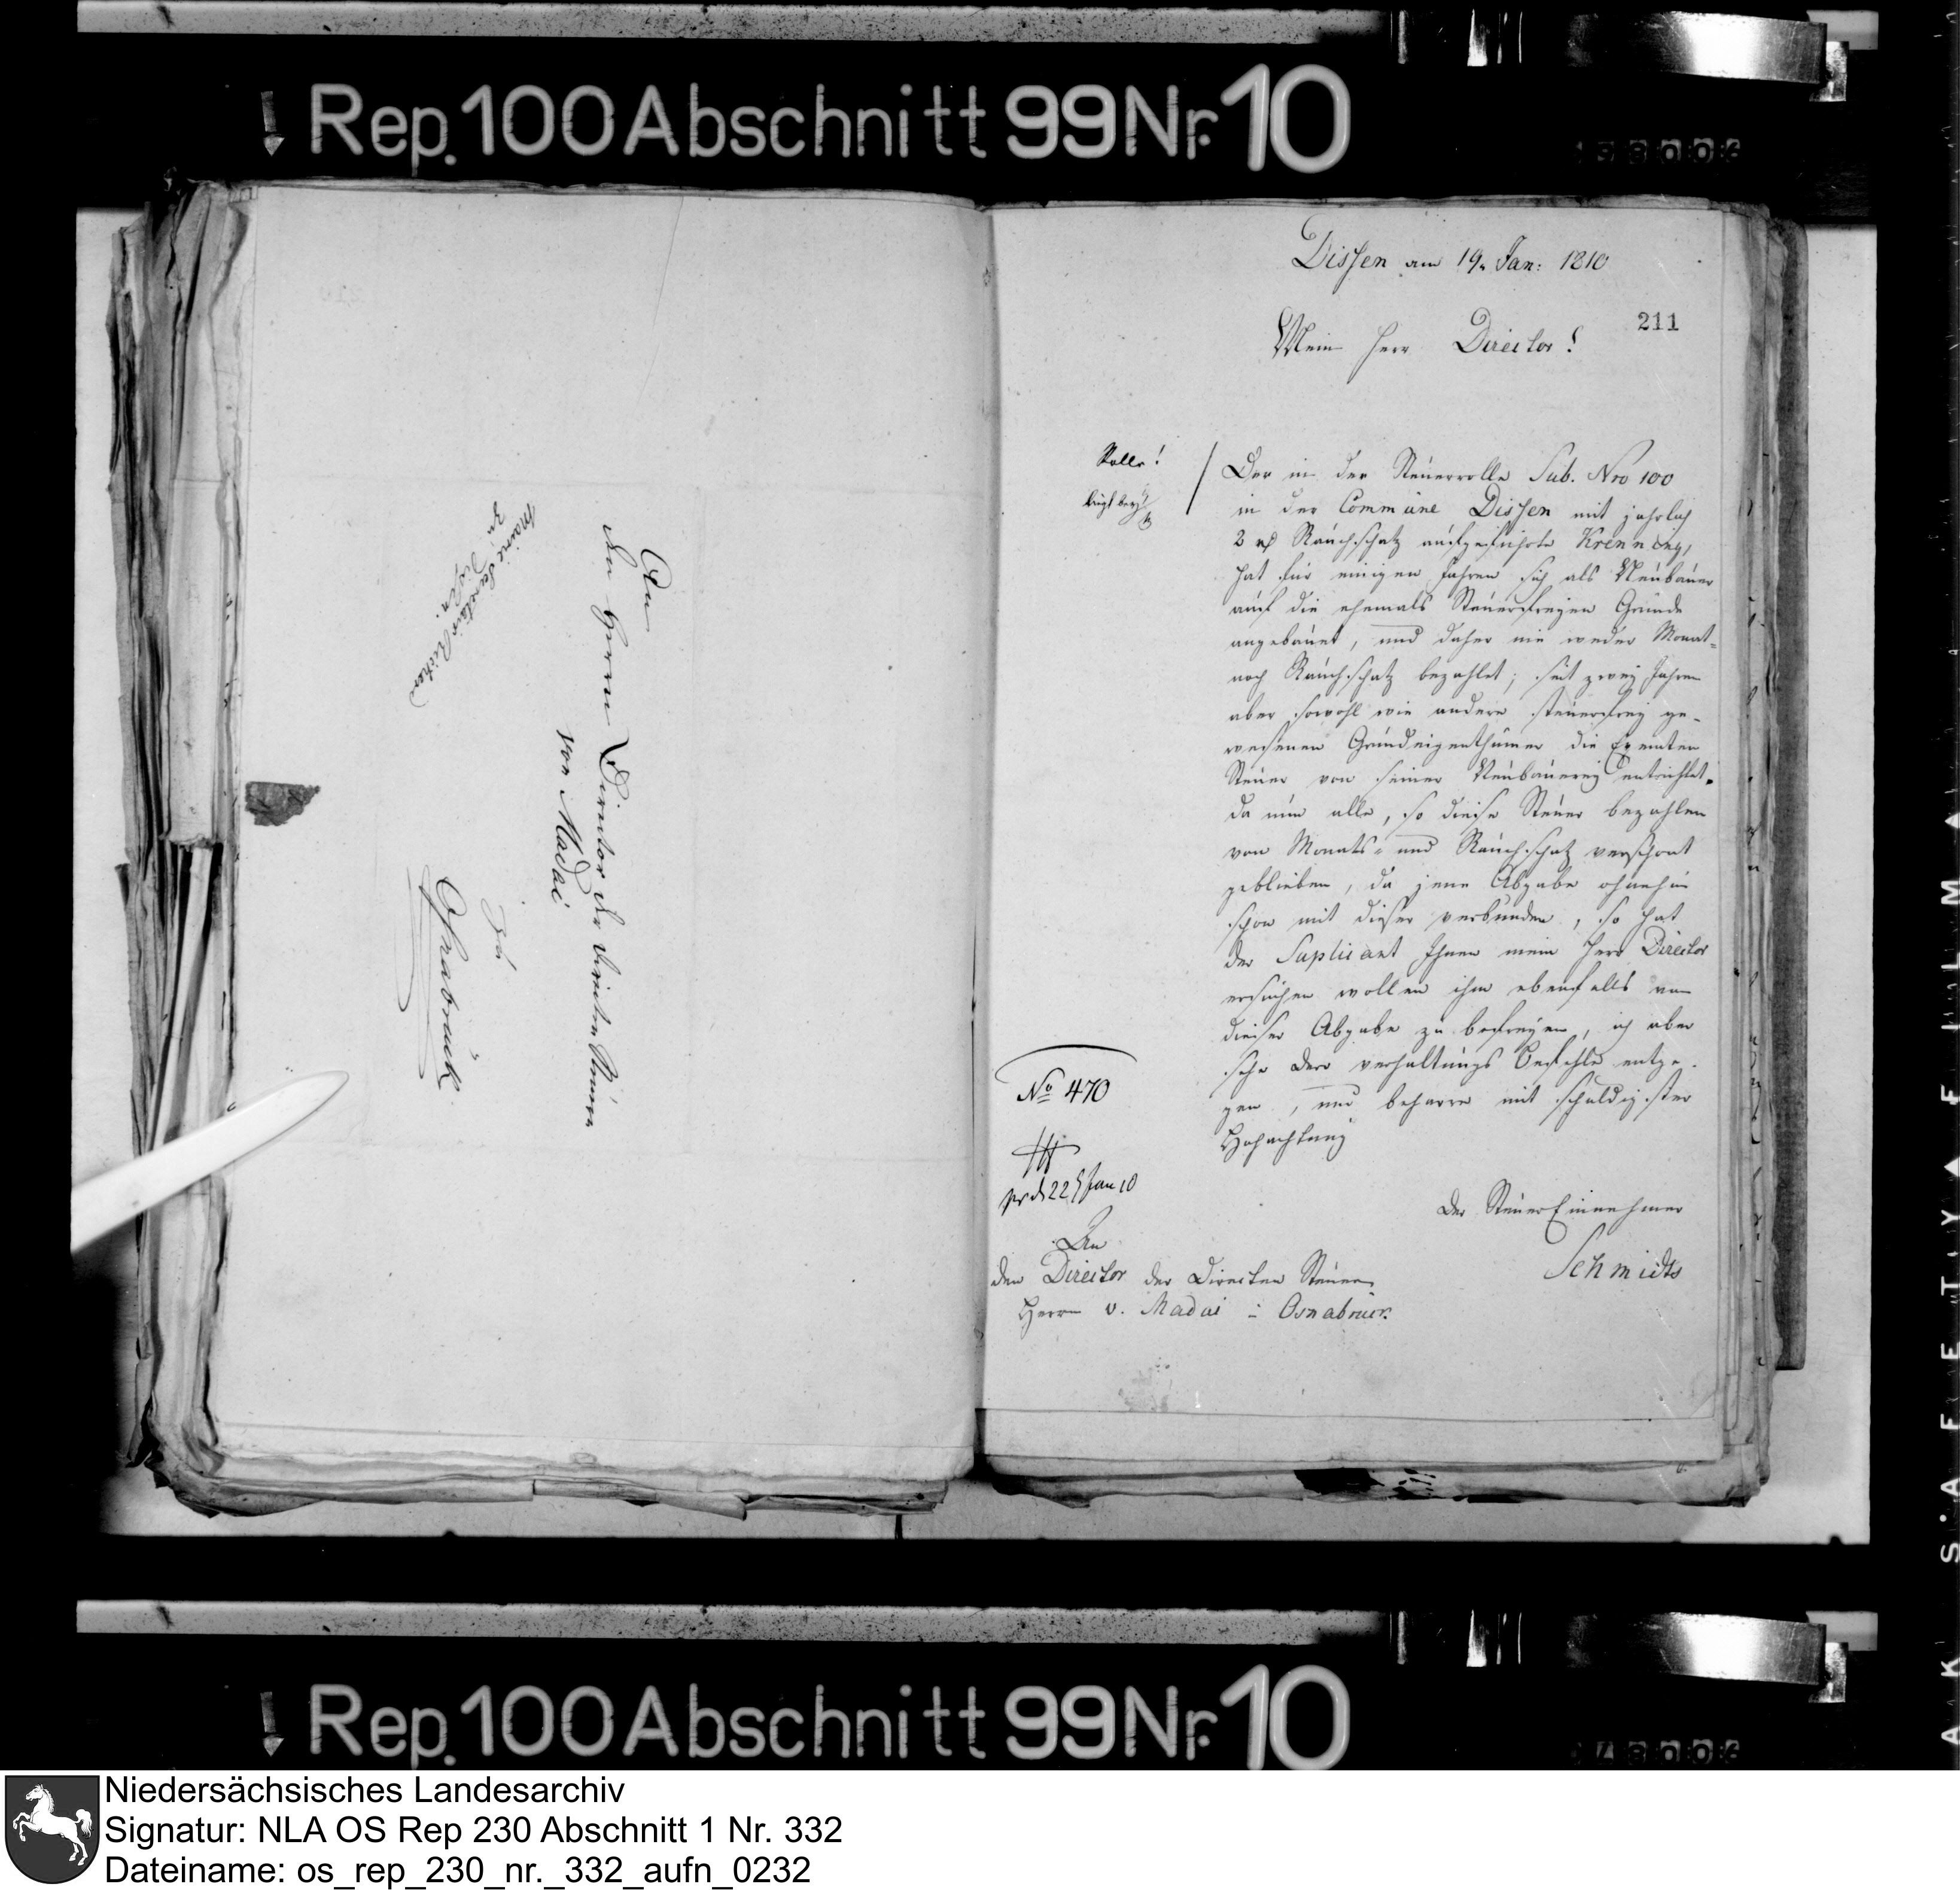 Rep. 100 Abschnitt 99 Nr. 10
An
den Herrn Director der directen Steuern
von Madai
zu
Osnabrück
Mairie Secretair
zu Dissen.
Dissen am 19. Jan: 1810
211
Mein Herr Director!
Rolle!
Der in der Steuerrolle Sub. Nro 100
in der Commüne Dissen mit jahrlich
2 rth Rauchschatz aufgeführte Krenning,
hat für einigen Jahren sich als Neubauer
auf die ehemals Steuerfreyen Gründe
angebauet, und daher nie weder Monat-
noch Rauchschatz bezahlet; seit zwey Jahren
aber sowohl wie andere steuerfrey ge-
wesenen Grundeigenthümer die Exemten
Steuer von seiner Neubauerey entrichtet.
Da nun alle, so diese Steuer bezahlen
von Monats- und Rauchschatz verschont
geblieben, da jene Abgabe ohnehin
schon mit dieser verbunden, so hat
der Suplicant Ihnen mein Herr Director
ersuchen wollen ihm ebenfalls von
dieser Abgabe zu befreyen, ich aber
sehe dero verhaltungs Befehle entge-
gen, und beharre mit schuldigster
Hochachtung
Der Steuer Einnehmer
Schmidts
No 470
pr d 22 Jan 10
An
den Director der Directen Steuern
Herrn v. Madai in Osnabrück.
Rep. 100 Abschnitt 99 Nr. 10
Niedersächsisches Landesarchiv
Signatur: NLA OS Rep 230 Abschnitt 1 Nr. 332
Dateiname: os_rep_230_nr._332_aufn_0232